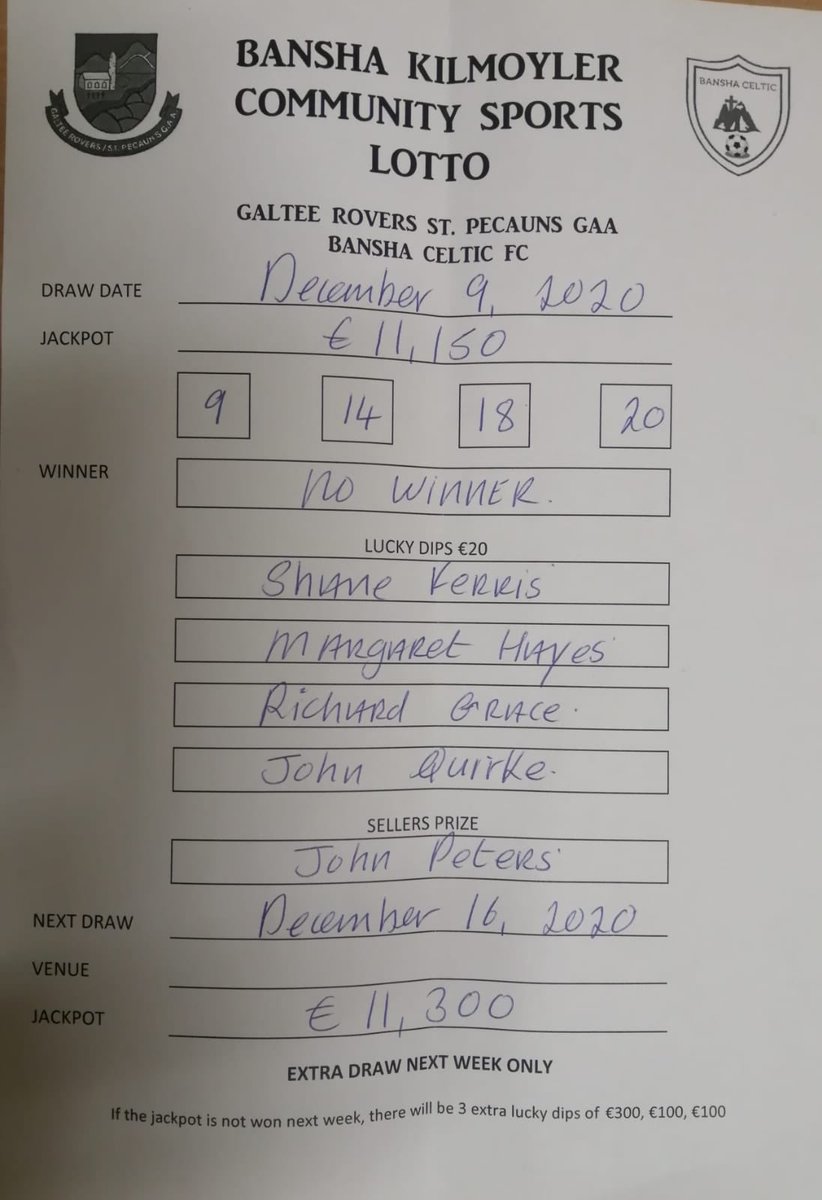 BANSHA KILMOYLER
COMMUNITY SPORTS
LOTTO
GALTEE ROVERS/ST. PECAUNS G.A.A.
BANSHA CELTIC
GALTEE ROVERS ST. PECAUNS GAA
BANSHA CELTIC FC
DRAW DATE December 9, 2020
JACKPOT € 11,150
9 14 18 20
WINNER NO WINNER.
LUCKY DIPS €20
Shane Ferris
Margaret Hayes
Richard Grace.
John Quirke.
SELLERS PRIZE
John Peters
NEXT DRAW December 16, 2020
VENUE
JACKPOT € 11,300
EXTRA DRAW NEXT WEEK ONLY
If the jackpot is not won next week, there will be 3 extra lucky dips of €300, €100, €100